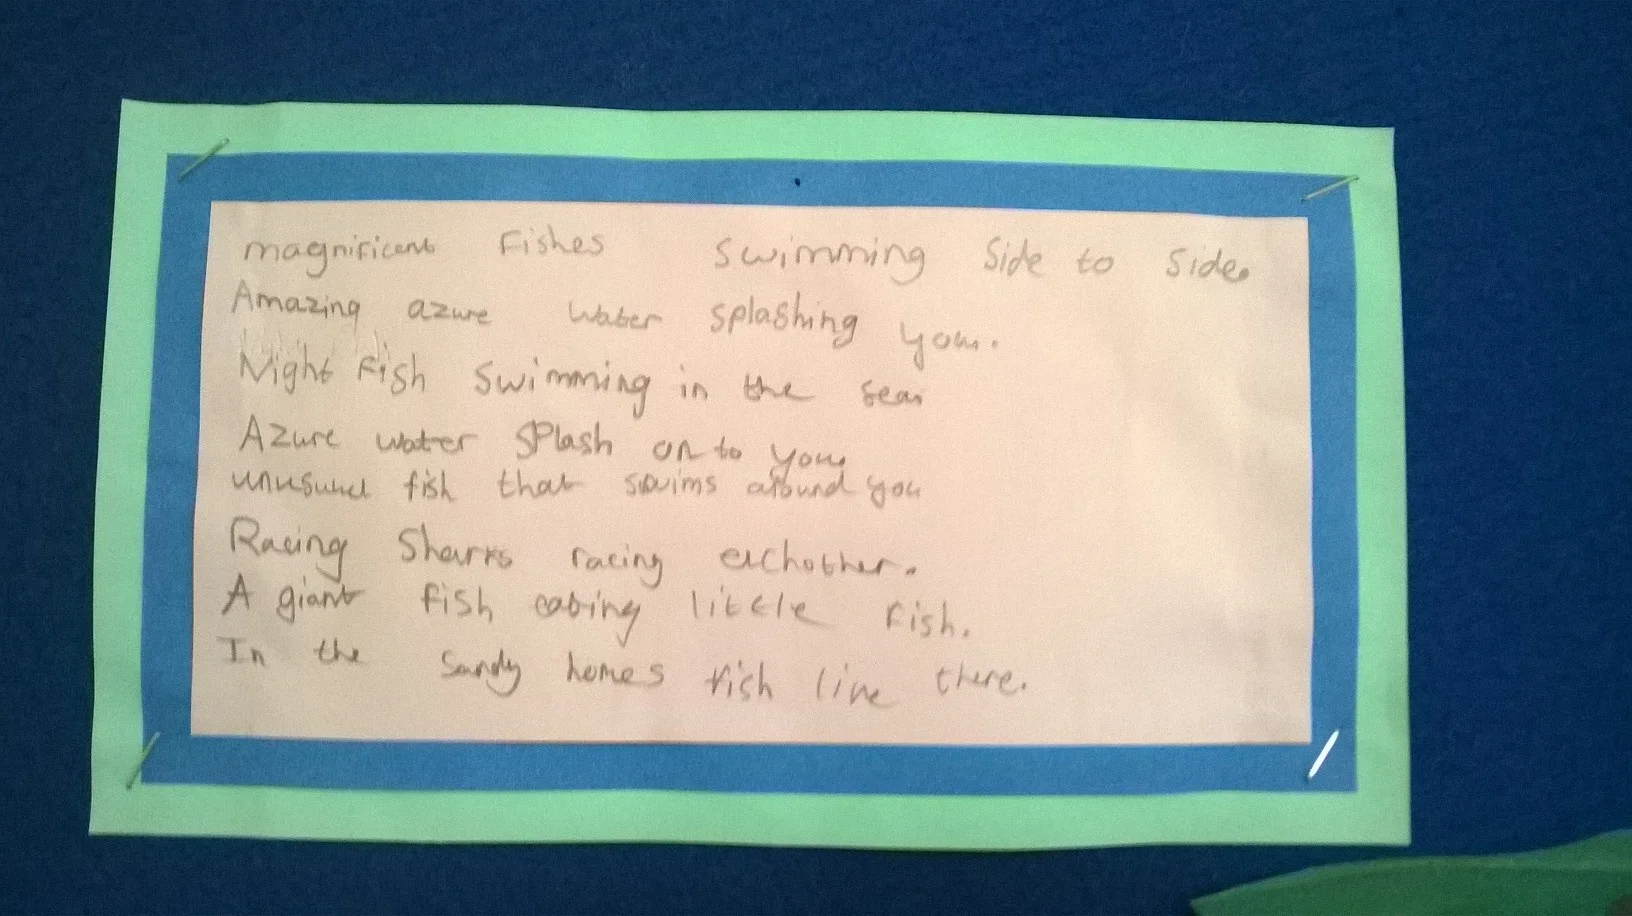 magnificent Fishes swimming Side to Side.
Amazing azure water splashing you.
Night Fish swimming in the sea
Azure water SPlash on to you
unusual fish that swims around you
Racing Sharks racing eachother.
A giant fish eating little Fish.
In the sandy homes fish live there.